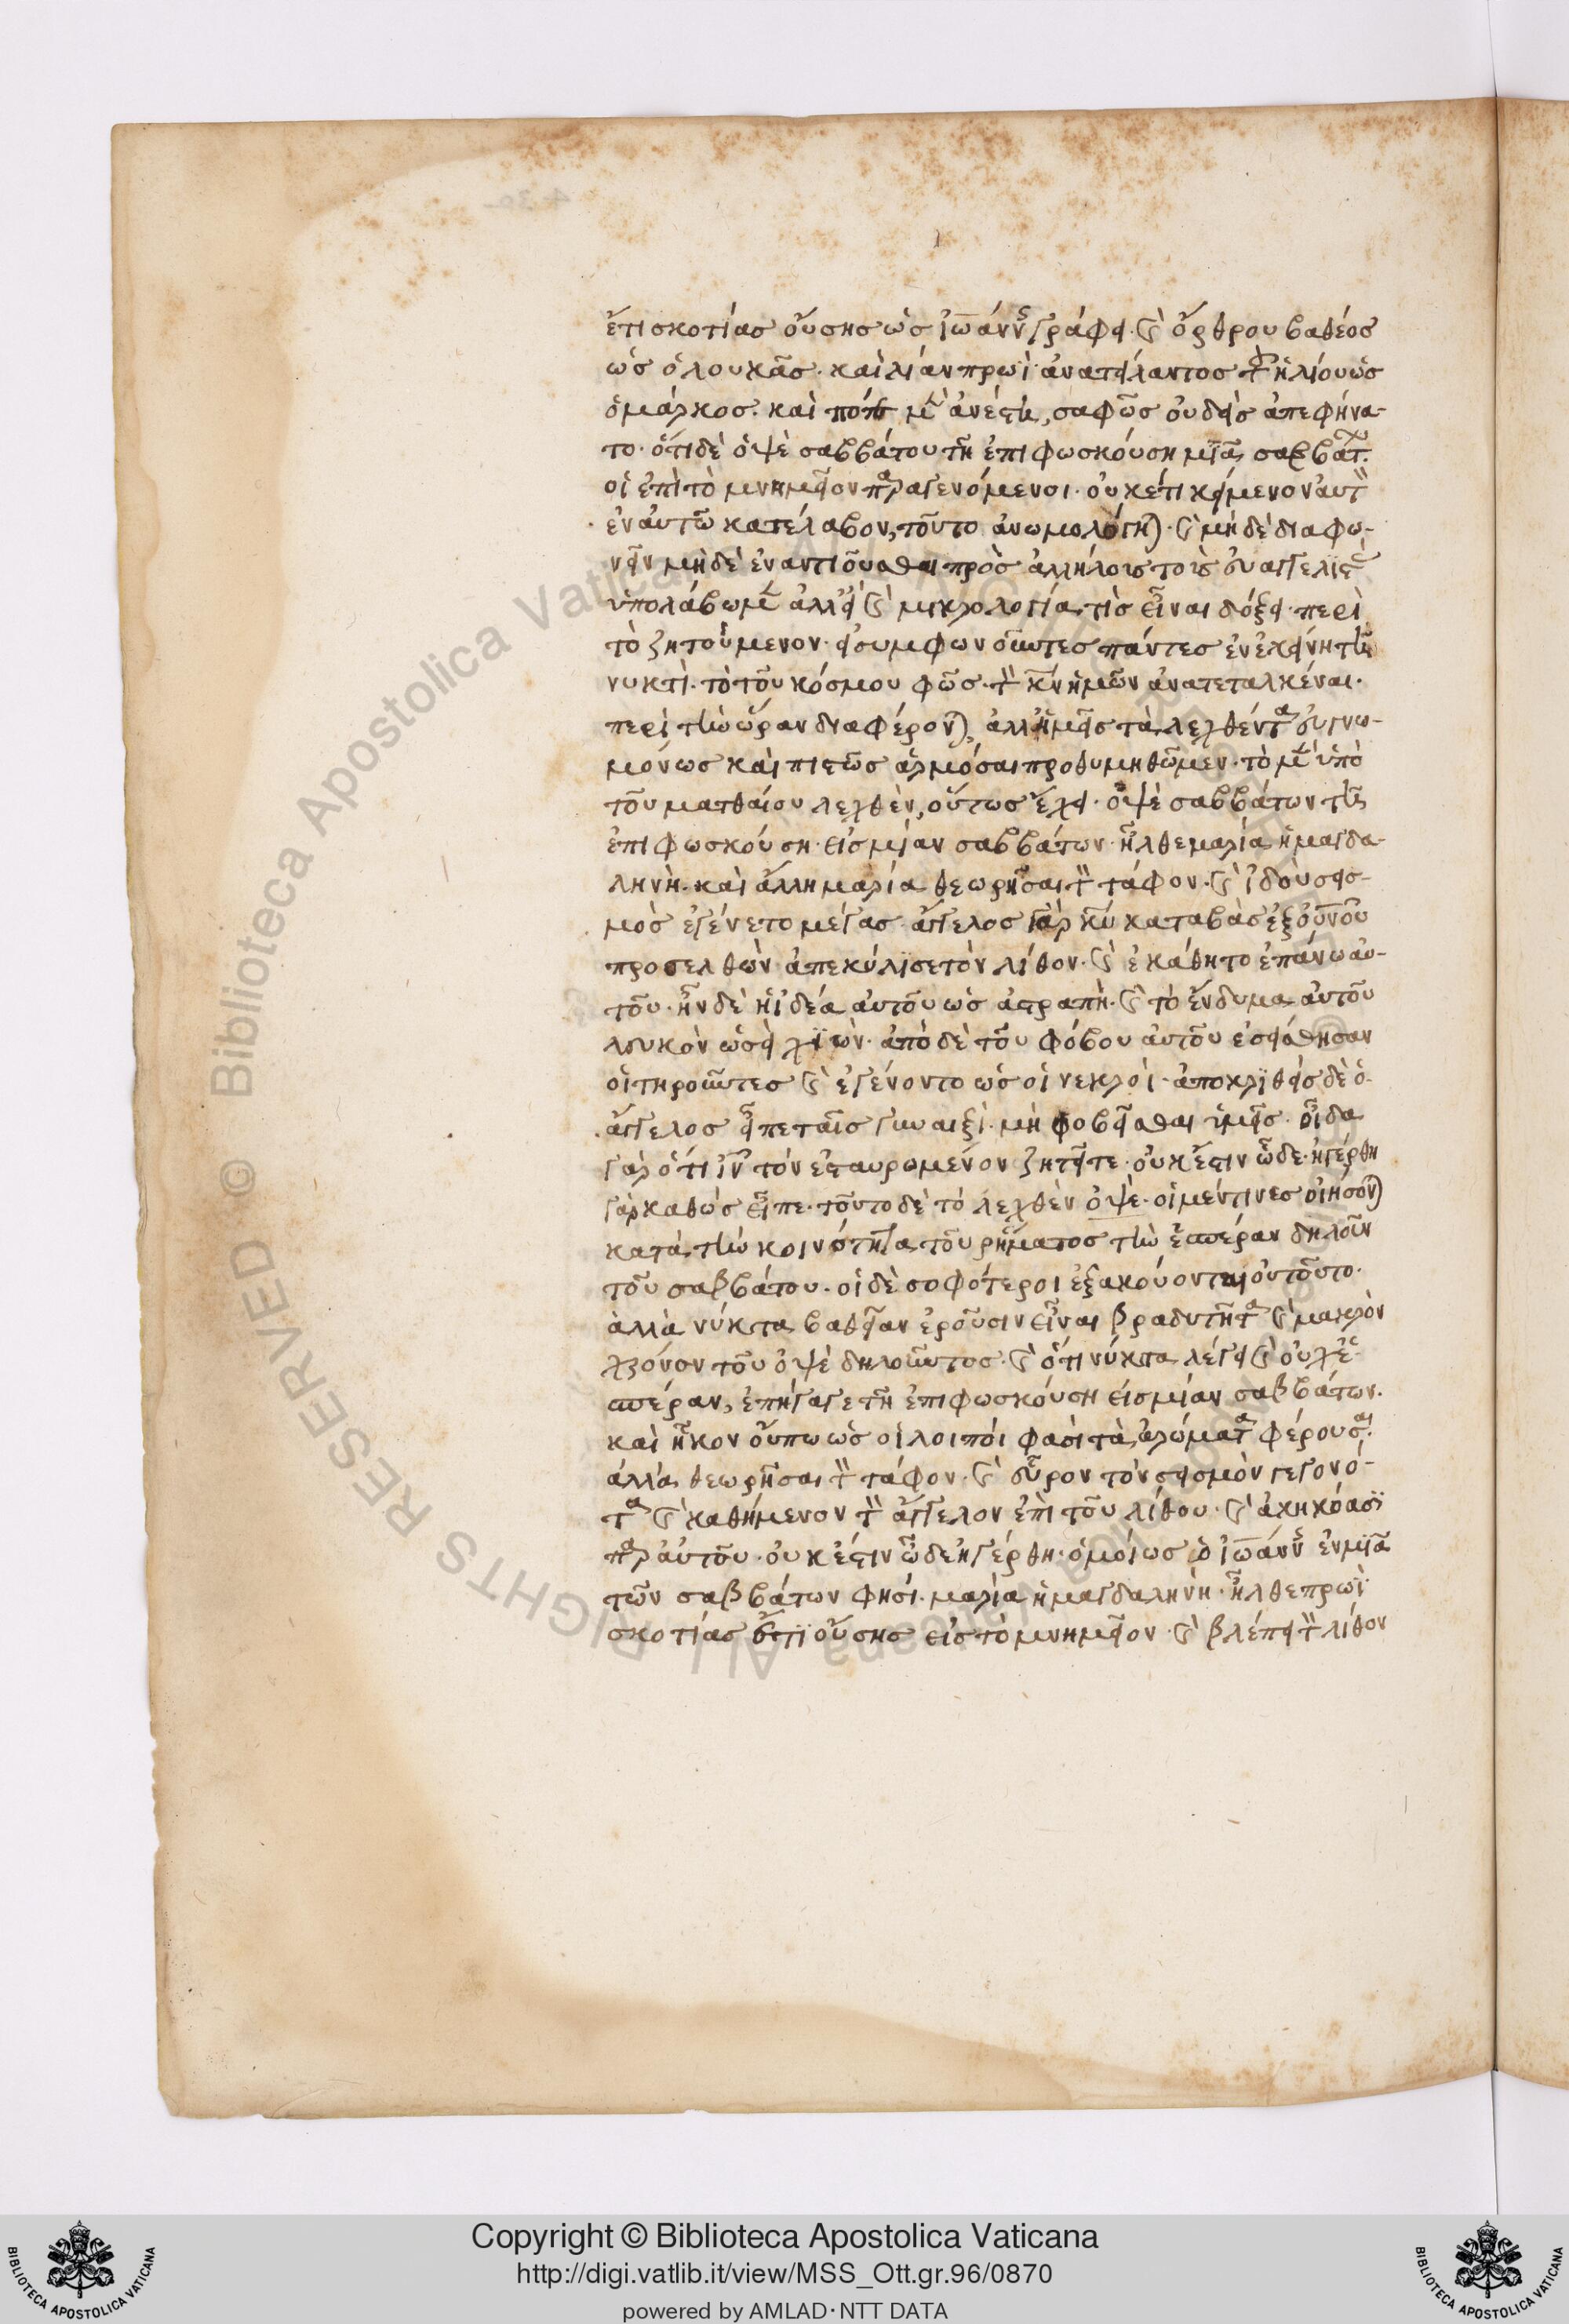 ἔτι σκοτίας οὔσης ὡς ἰωάννης γράφει· καὶ ὄρθρου βαθέος
ὡς ὁ λουκᾶς· καὶ λίαν πρωῒ ἀνατείλαντος τοῦ ἡλίου ὡς
ὁ μάρκος· καὶ πότε μὲν ἀνέστη, σαφῶς οὐδεὶς ἀπεφήνα-
το· ὅτι δὲ ὀψὲ σαββάτου τῇ ἐπιφωσκούσῃ μϊᾷ σαββάτων
οἱ ἐπὶ τὸ μνημεῖον παραγενόμενοι· οὐκέτι κείμενον αὐτὸν
ἐν αὐτῷ κατέλαβον, τοῦτο ἀνωμολόγηται· καὶ μηδὲ διαφω-
νεῖν μηδὲ ἐναντιοῦσθαι πρὸς ἀλλήλους τοὺς εὐαγγελιστὰς
ὑπολάβωμεν ἀλλ' εἰ καὶ μικρολογία τὶς εἶναι δόξει περὶ
τὸ ζητούμενον· εἰ συμφωνοῦντες πάντες ἐν ἐκείνῃ τῇ
νυκτὶ· τὸ τοῦ κόσμου φῶς· τὸν κν ἡμῶν ἀνατεταλκέναι·
περὶ τὴν ὥραν διαφέρονται, ἀλλ' ἡμεῖς τὰ λεχθέντα εὐγνω-
μόνως καὶ πιστῶς ἁρμόσαι προθυμηθῶμεν· τὸ μὲν ὑπὸ
τοῦ ματθαίου λεχθὲν, οὕτως ἔχει· ὀψὲ σαββάτων τῇ
ἐπιφωσκούσῃ εἰς μίαν σαββάτων· ἦλθε μαρία ἡ μαγδα-
ληνὴ· καὶ ἄλλη μαρία θεωρῆσαι τὸν τάφον· καὶ ἰδοὺ σεισ-
μὸς ἐγένετο μέγας· ἄγγελος γὰρ κυ καταβὰς ἐξ οὐνου
προσελθὼν ἀπεκύλϊσε τὸν λίθον· καὶ ἐκάθητο ἐπάνω αὐ-
τοῦ· ἦν δὲ ἡ ἰδέα αὐτοῦ ὡς ἀστραπὴ· καὶ τὸ ἔνδυμα αὐτοῦ
λευκὸν ὡσεὶ χϊών· ἀπὸ δὲ τοῦ φόβου αὐτοῦ ἐσείσθησαν
οἱ τηροῦντες καὶ ἐγένοντο ὡς οἱ νεκροὶ· ἀποκρϊθεὶς δὲ ὁ
ἄγγελος εἶπε ταῖς γυναιξὶ· μὴ φοβεῖσθαι ὑμεῖς· οἶδα
γὰρ ὅτι ιν τὸν ἐσταυρωμένον ζητεῖτε· οὐκ ἔστιν ὧδε· ἠγέρθη
γὰρ καθὼς εἶπε· τοῦτο δὲ τὸ λεχθὲν ὀψὲ· οἱ μέν τινες οἰήσονται
κατὰ τὴν κοινότητα τοῦ ρήματος τὴν ἑσπέραν δηλοῦν
τοῦ σαββάτου· οἱ δὲ σοφότεροι ἐξακούονται οὐ τοῦτο·
ἀλλὰ νύκτα βαθεῖαν ἐροῦσιν εἶναι βραδυτῆτα καὶ μακρὸν
χρόνον τοῦ ὀψὲ δηλοῦντος· καὶ ὅτι νύκτα λέγει καὶ οὐχ ἑ-
σπέραν, ἐπήγαγε τῇ ἐπιφωσκούσῃ εἰς μίαν σαββάτων·
καὶ ἧκον οὔπω ὡς οἱ λοιποί φασὶ τὰ ἀρώματα φέρουσαι·
ἀλλὰ θεωρῆσαι τὸν τάφον· καὶ εὗρον τὸν σεισμὸν γεγονό-
τα καὶ καθήμενον τὸν ἄγγελον ἐπὶ τοῦ λίθου· καὶ ἀκηκόασϊ
παρ' αὐτοῦ· οὐκ ἔστιν ὧδε ἠγέρθη· ὁμοίως ὁ ἰωάννης ἐν μϊᾷ
τῶν σαββάτων φησί· μαρία ἡ μαγδαληνὴ· ἦλθε πρωῒ
σκοτίας ἔτι οὔσης εἰς τὸ μνημεῖον· καὶ βλέπει τὸν λίθον
Copyright © Biblioteca Apostolica Vaticana
http://digi.vatlib.it/view/MSS_Ott.gr.96/0870
powered by AMLAD·NTT DATA
BIBLIOTECA APOSTOLICA VATICANA
BIBLIOTECA APOSTOLICA VATICANA